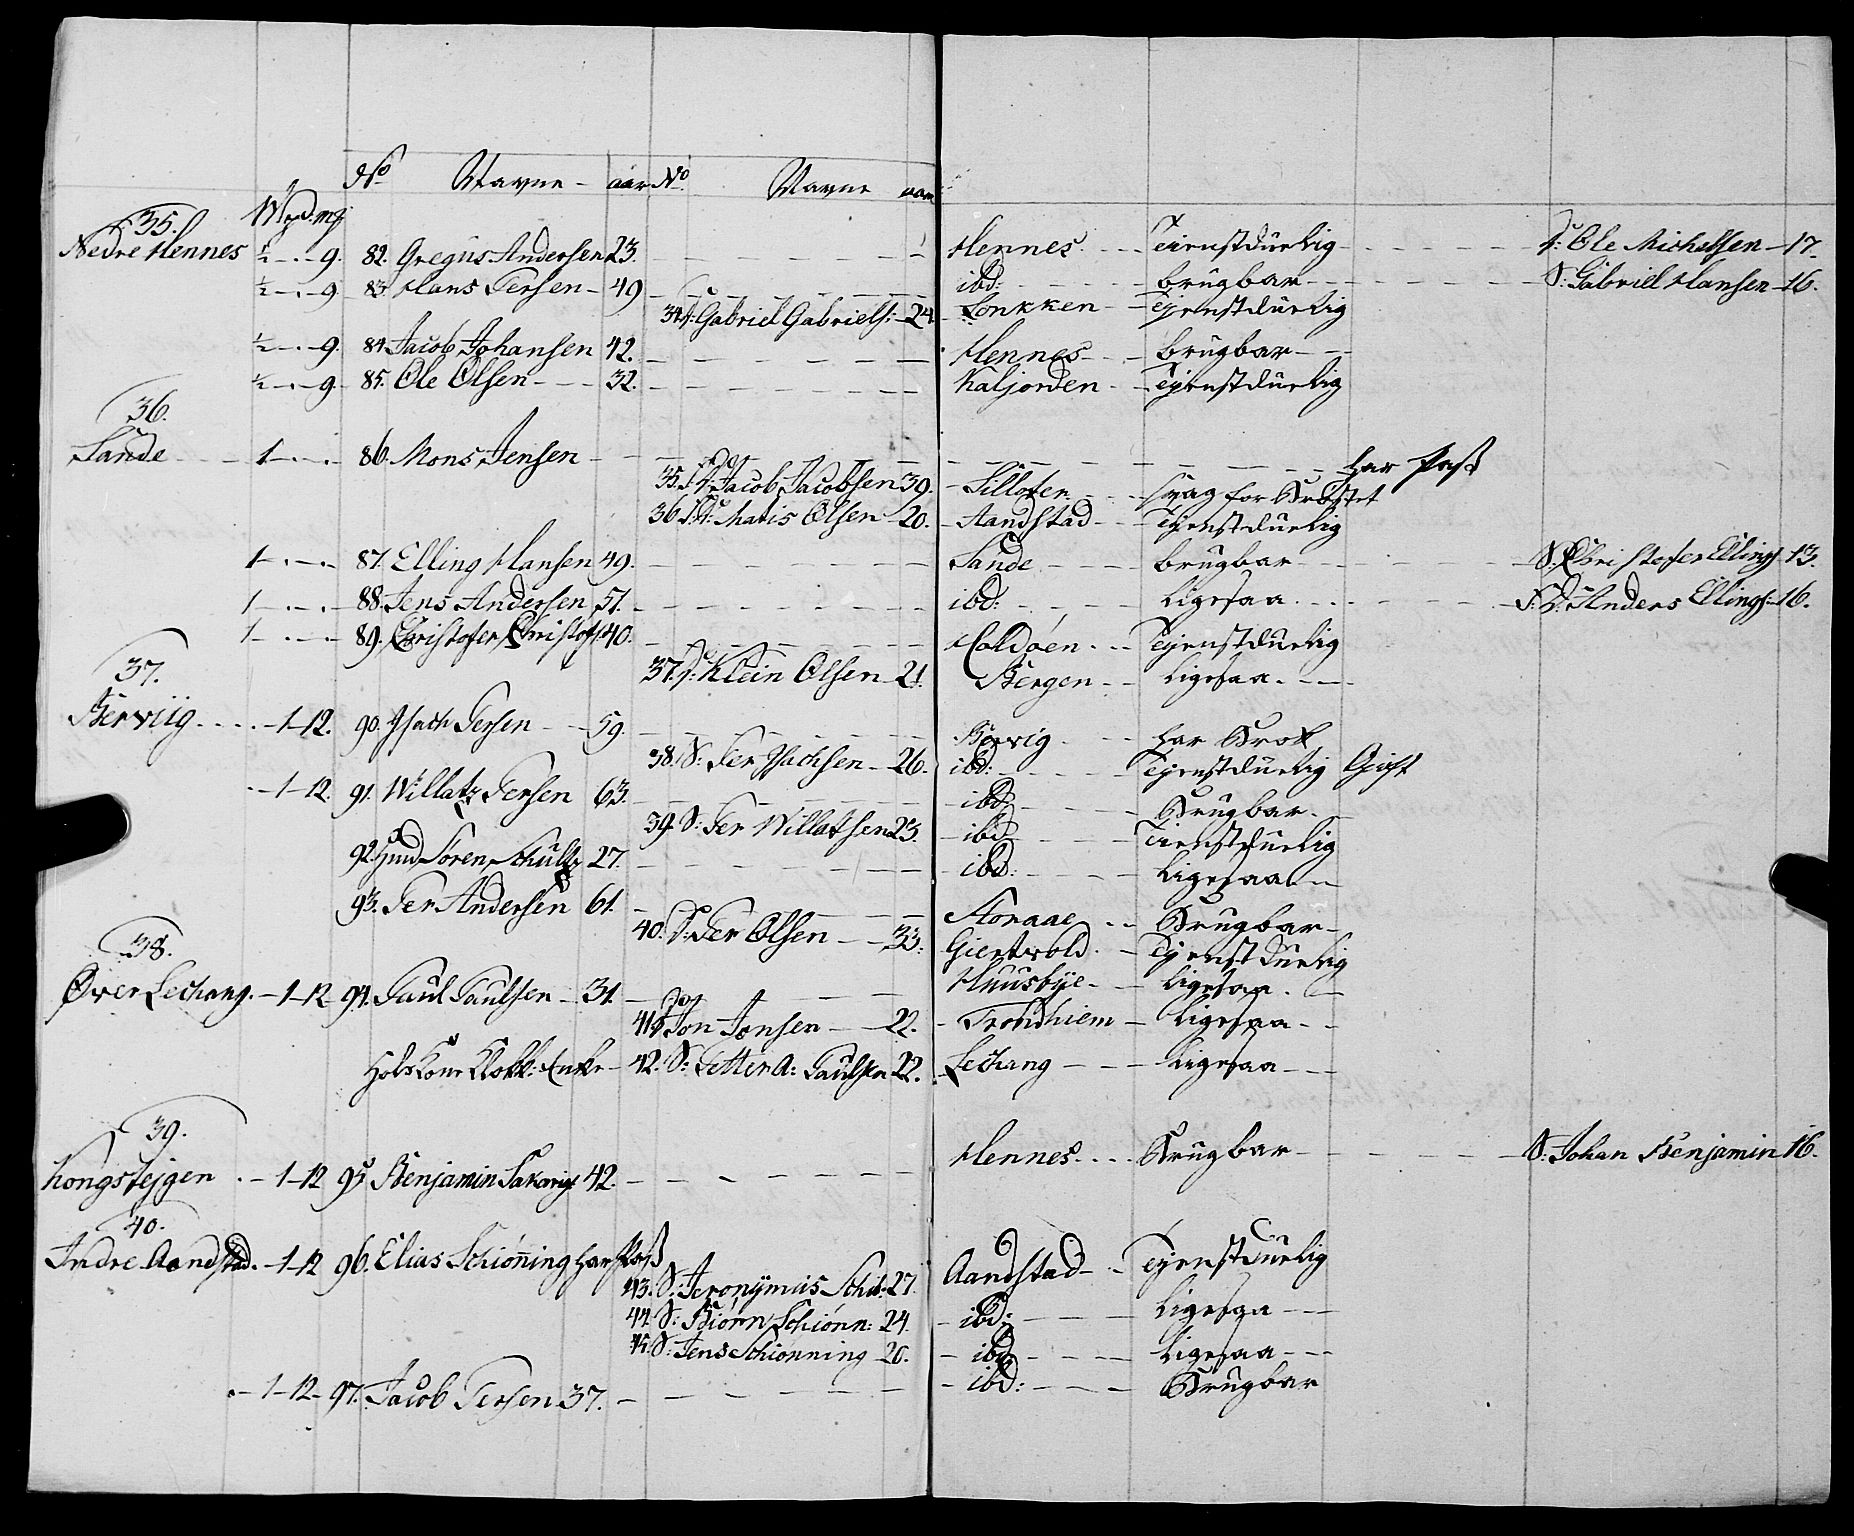 No Navne - aar No Navne aar
W pd. mg
35.
Nedre Hennes ½ - . - 9. 82. Gregus Andersen 23. - - - - - - Hennes. - - Tienstduelig - - - - - - D: Ole Michelsen - 17.
½ - . - 9 83. Hans Persen - 49 - - - - - - ibd: - - - brugbar - - - - - - S: Gabriel Hansen - 16.
34. D: Gabriel Gabriels: - 24. - Lonkken - - Tjenstduelig
½ - . - 9. 84. Jacob Johansen 42. - - - - - - Hennes - - - brugbar - - -
½ - . - 9. 85. Ole Olsen - - - 32. - - - - - - Kaljorden - - Tjenstduelig
36.
Sande - - - 1 - . - . 86. Mons Jensen - - - - - - - - - - - - - har Pass
35. Jacob Jacobsen 39. - Silloten - - - svag for Brøstet
36. Matis Olsen - 20. - Aandstad - - Tjenstduelig
1 - . - . 87. Elling Hansen 49. - - - - - - Sande - - - brugbar - - - - - S. Christofer Ellings 13.
1 - . - . 88. Jens Andersen 51. - - - - - - ibd: - - - Ligesaa. - - - - - Anders Ellings: - 16.
1 - . - . 89. Christofer Christofs: 40. - - - - - - Holdøen - - - Tjenstduelig
37. D: Klein Olsen - 21. Bergen - - Ligesaa. - - -
37.
Berviig - - - - 1 - 12. 90. Isach Persen - - 59. - - - - - - Bervig - - - har Brok
38. S: Per Isachsen - 26. ibd: - - - - Tjenstduelig Gift
- 1 - 12. 91. Willatz Persen 63. - - - - - - ibd - - - - Brugbar. -
39. S: Per Willatsen 23. - ibd - - - - Tienstduelig
92. Hmd Søren Schultz 27. - - - - - - ibd: - - - - Ligesaa - -
93. Per Andersen 61. - - - - - Storaae - - - Brugbar -
40. D: Per Olsen - - 33. Giertvold. - Tjenstduelig
38.
Øver Lechang. - 1 - 12 94. Paul Paulsen - 31. - - - - - Huusbye - - Ligesaa. -
41. Jon Jonsen - - 22. - Trondhiem - Ligesaa - -
Enke - 42. S: Petter A: Paulsen 22. Lechang - - - Ligesaa - - -
39.
Kongsteigen . - 1 - 12 95. Benjamin Sakarias 42. - - - - - - Hennes. - - . Brugbar - - - - - - S. Johan Benjamin 16.
40.
Indre Aandstad. - 1 - 12 96. Elias Schiønning har Pass
43. S: Jeronymus Schiø: 27. Aandstad - - Tjenstduelig
44. S: Biørn Schiønn: 24. - ibd: - - - - Ligesaa - - -
45. S: Jens Schiønning 20. - ibd: - - - - Ligesaa - - -
. - 1 - 12 - 97. Jacob Persen 37. - - - - - - - ibd: - - - - Brugbar